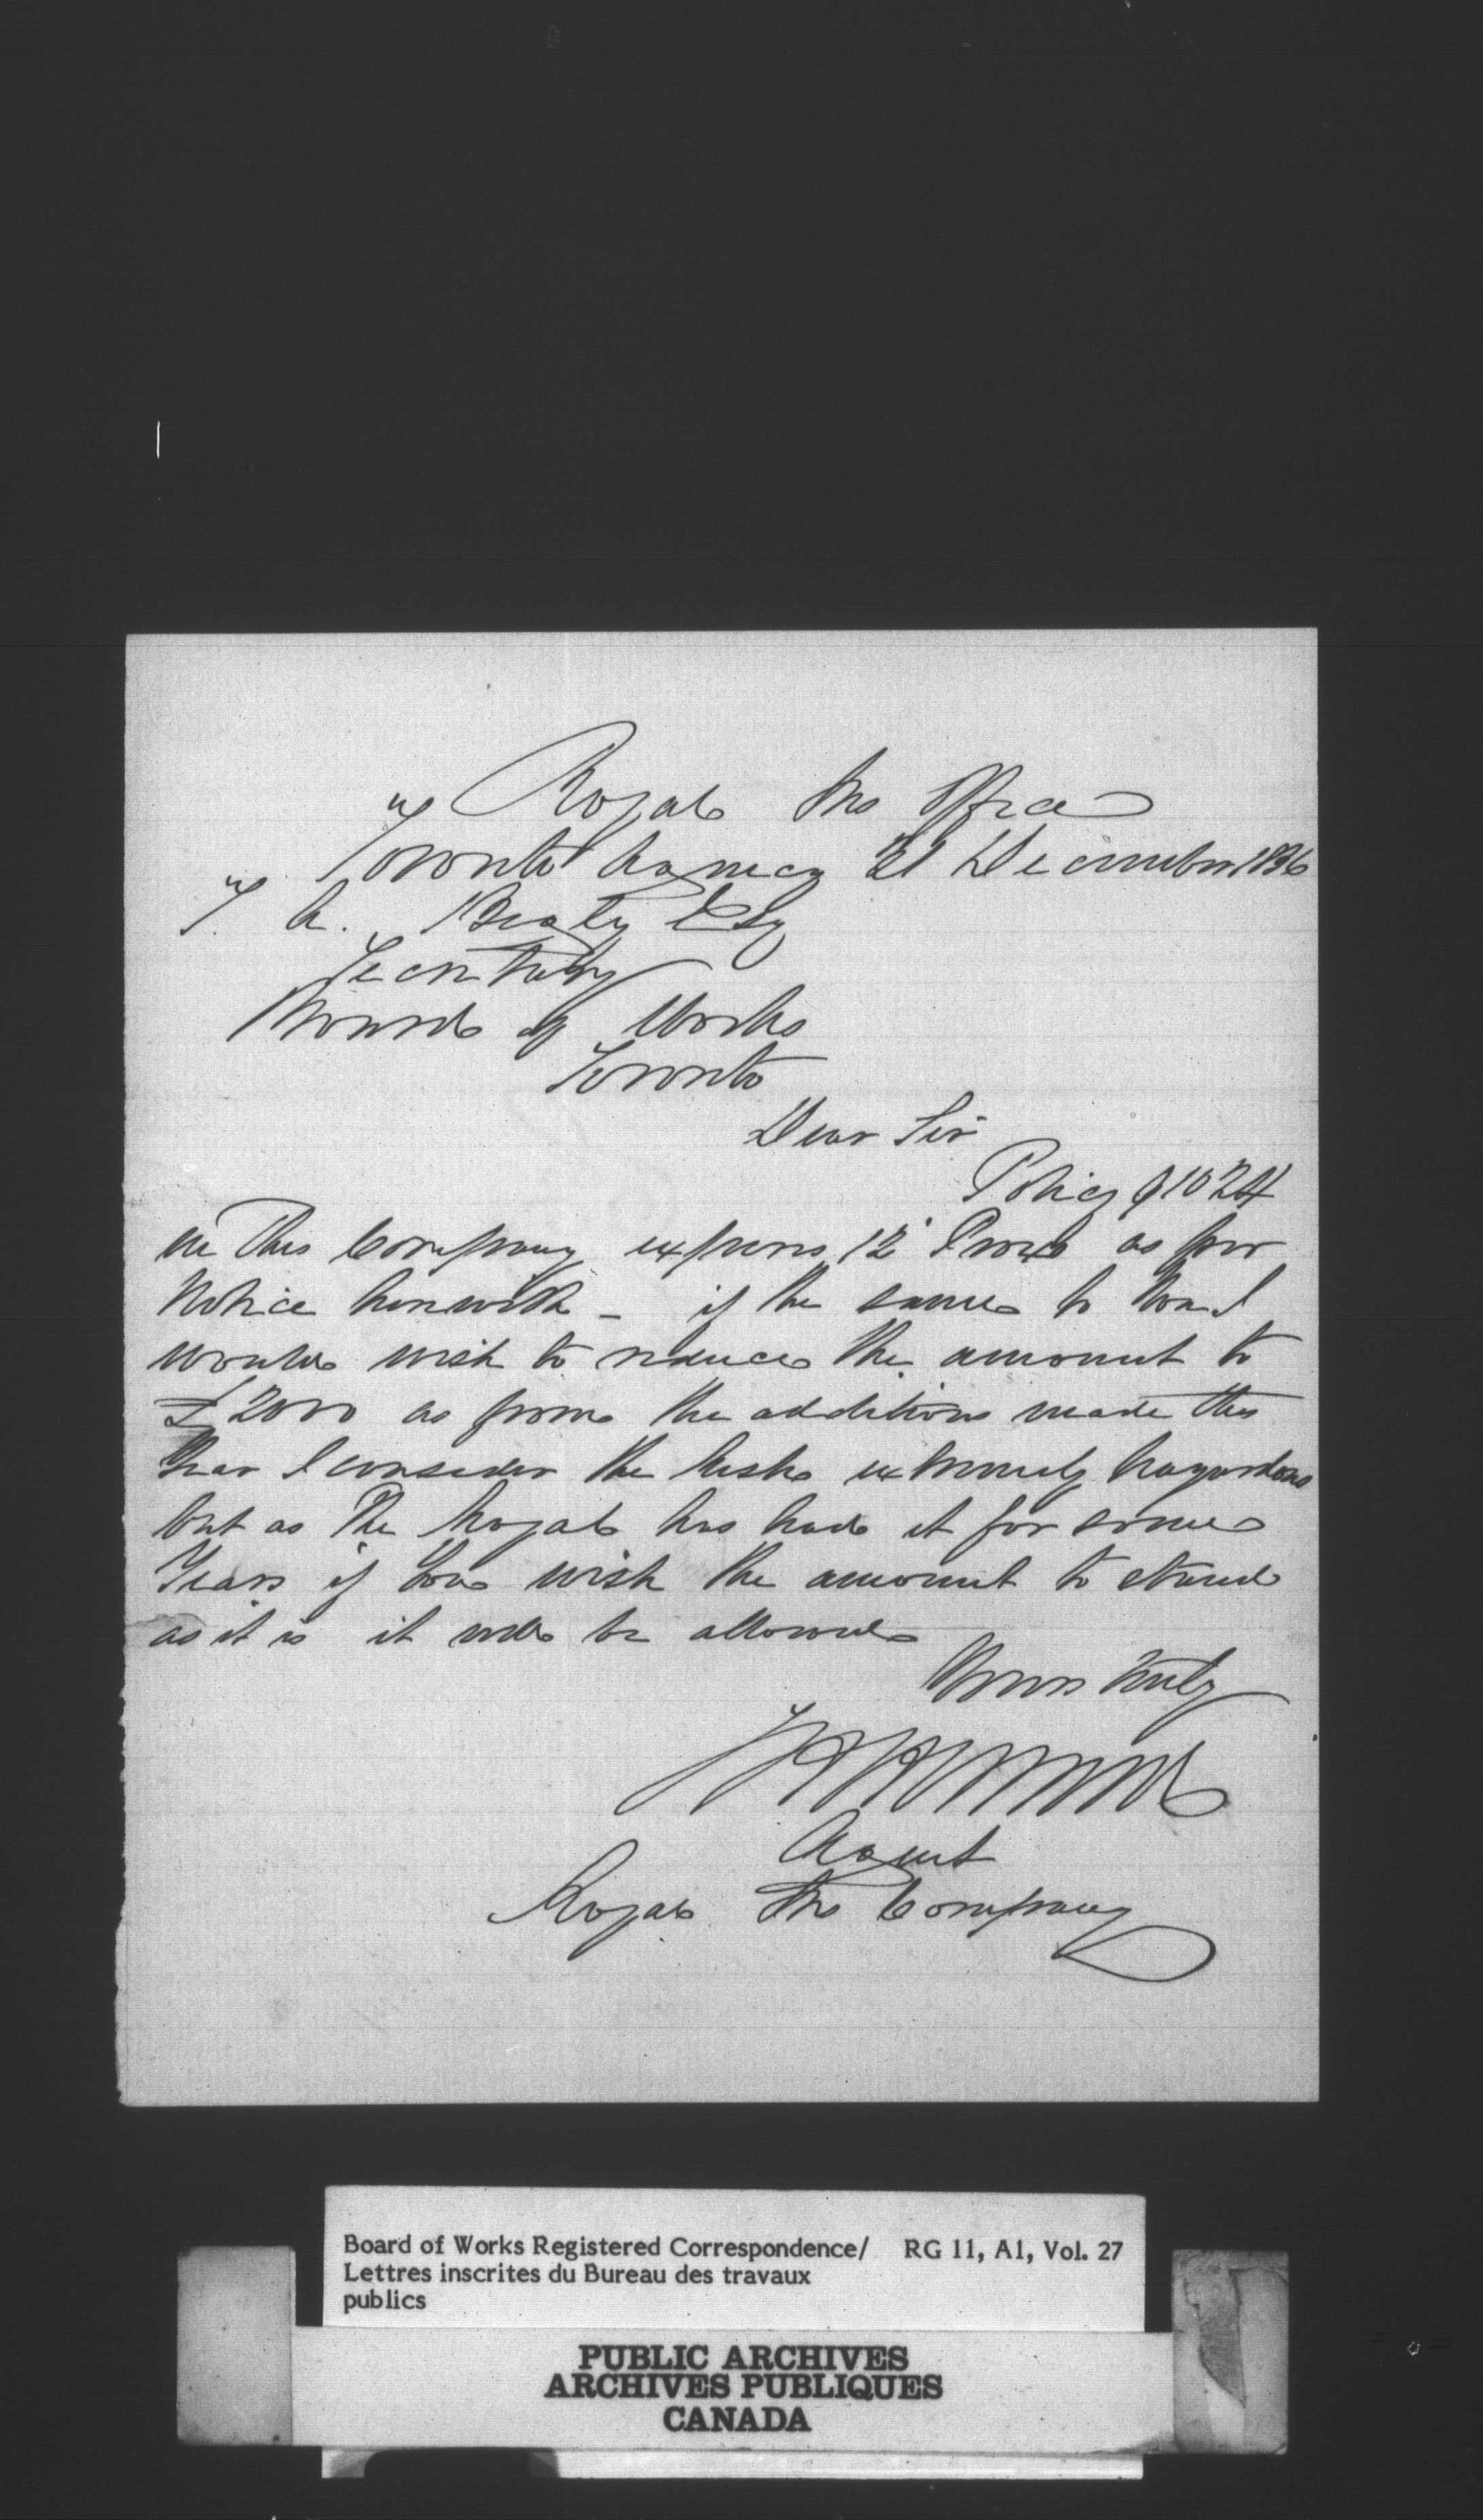 Royal Ins Office
Toronto Agency 31 December 1856
T. A. Begly Esq
Secretary
Board of Works
Toronto
Dear Sir
Policy 91024
in this Company expires 12 Proxo as per
Notice herewith - if the same to You I
would wish to reduce the amount to
£2000 as from the additions made this
Year I consider the Risk extremely hazardous
but as the Royal has had it for some
Years if You wish the amount to stand
as it is it will be allowed
Yours truly
Agent
Royal Ins Company
Board of Works Registered Correspondence/ RG 11, A1, Vol. 27
Lettres inscrites du Bureau des travaux
publics
PUBLIC ARCHIVES
ARCHIVES PUBLIQUES
CANADA